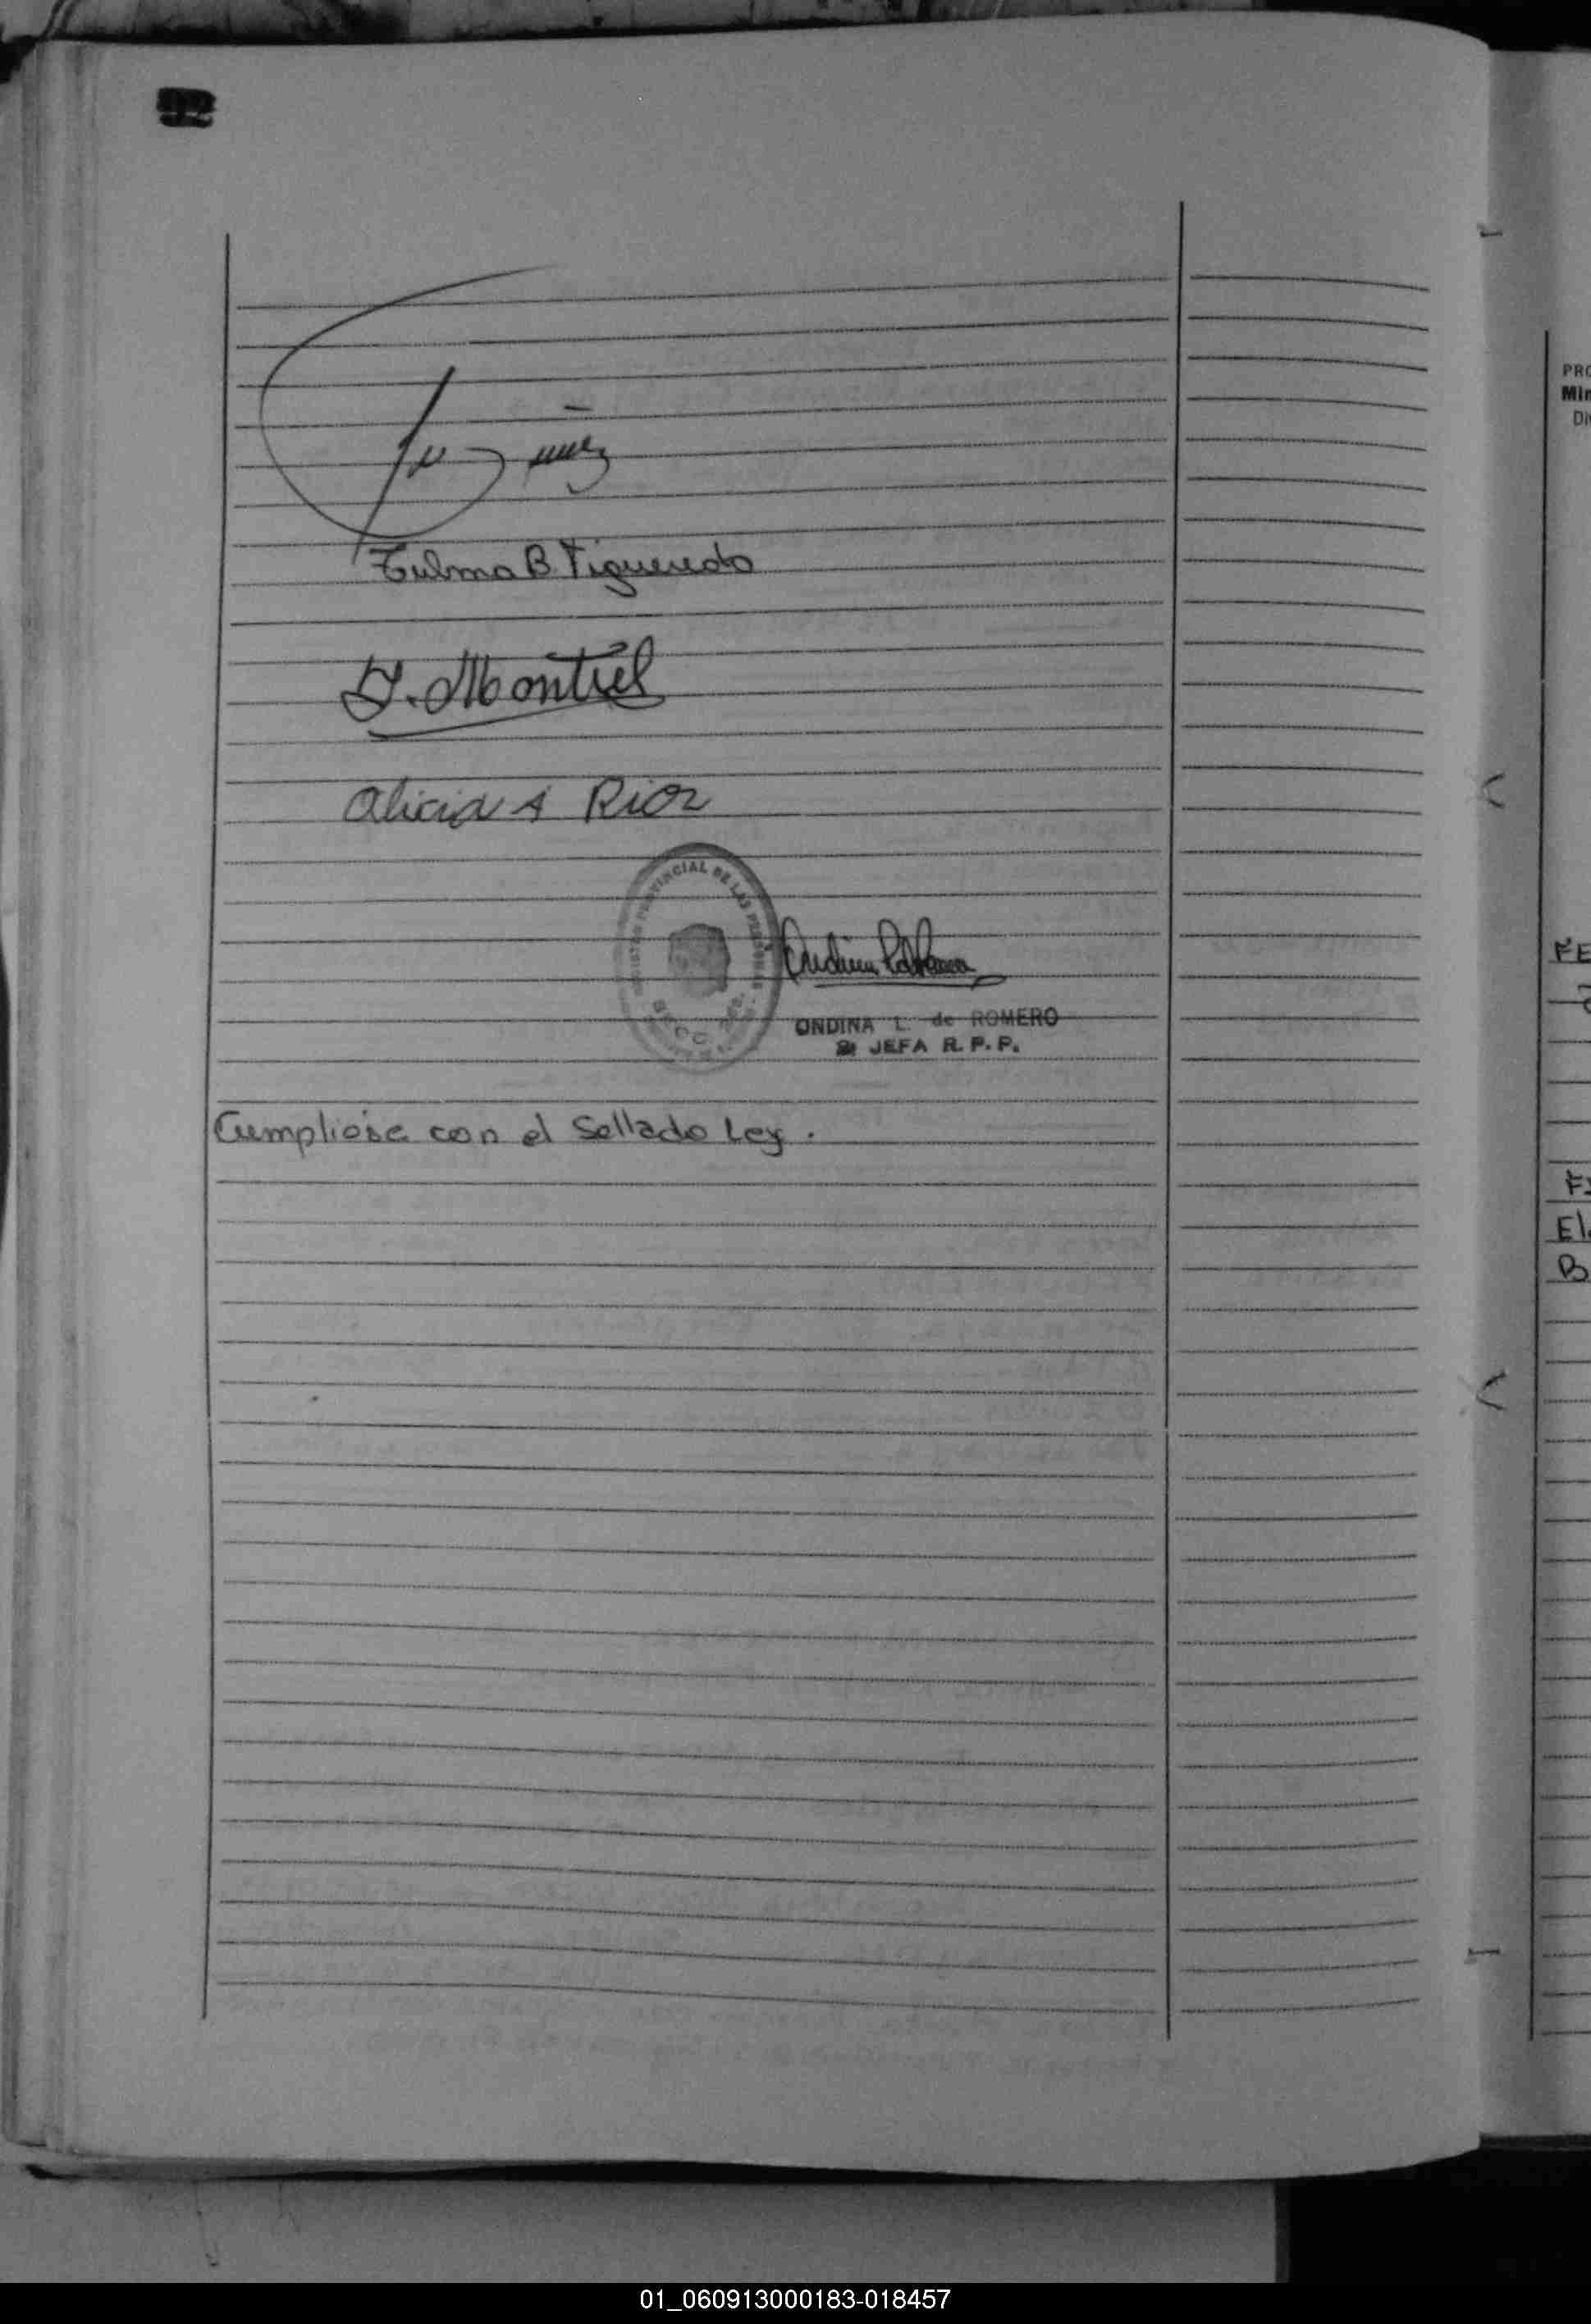 92
Tulma B Figueredo
D. Montiel
Alicia A Rior
REGISTRO PROVINCIAL DE LAS PERSONAS
SECC
ONDINA L. de ROMERO
JEFA R. P. P.
Cumplióse con el Sellado Ley.
PRO
Min
Di
FE
El
B
01_060913000183-018457